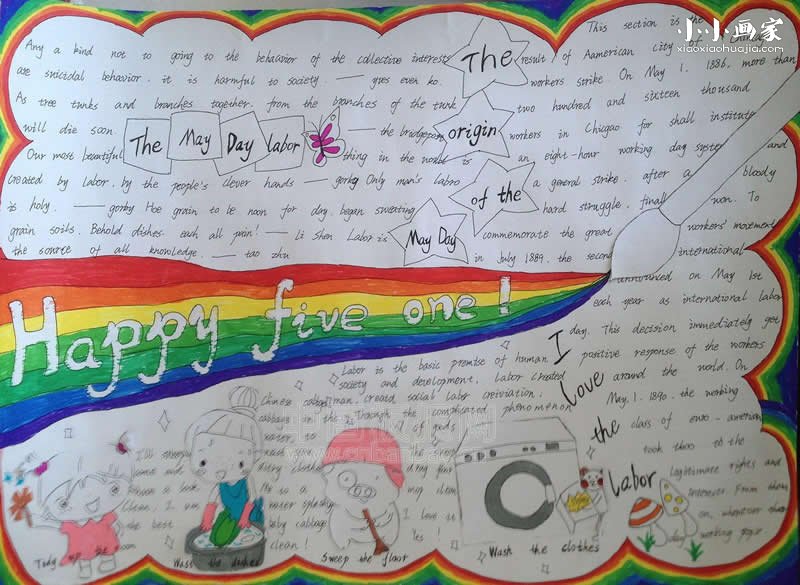 小小画家
xiaoxiaohuajia.com
Any a kind not to going to the behavior of the collective interests
are suicidal behavior. it is harmful to society —— gres even ko.
As tree tunks and branches together. from the branches of the tunk
will die soon. —— the bridgepam
Our most beautiful thing in the world is
The May Day labor
created by labor, by the people's clever hands —— gorky Only man's labro
is holy. —— gorby Hoe grain to be noon for day. began sweating
grain soils. Behold dishes. each all pain! —— Li Shen Labor is
the source of all knowledge. —— tao zhu
The
origin
of the
May Day
This section is the
result of Aamerican city of Chicac
workers strike On May 1, 1886, more than
two hundred and sixteen thousand
workers in Chicgao for shall institute
an eight-hour working day system and
a general strike. after a bloody
hard struggle, final won. To
commemorate the great workers' movement
in July 1889. the second international
announced on May 1st
each year as international labor
day. This decision immediately get
positive response of the workers
around the world. On
May, 1. 1890. the working
class of euro-american
took thoo to the
legitimate rights and
interever From then
on, whenever
day working
Happy five one!
I
love
the
labor
Labor is the basic premise of human
society and development. Labor created
man, creatd social labor creivation.
Through the complicated phenomenon
of gods
Chinese cabbage
cabbage in the
water, to
dirty clothes
As is a
water splashy
baby cabbage
clean!
I'll
room and
Person a look.
Clean. I am
the best
drag
my
I love
Yes!
Tidy up the room
Wash the dishes
Sweep the floor
Wash the clothes